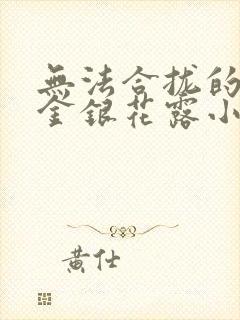 無法合拢的
金銀花露小
黄仕